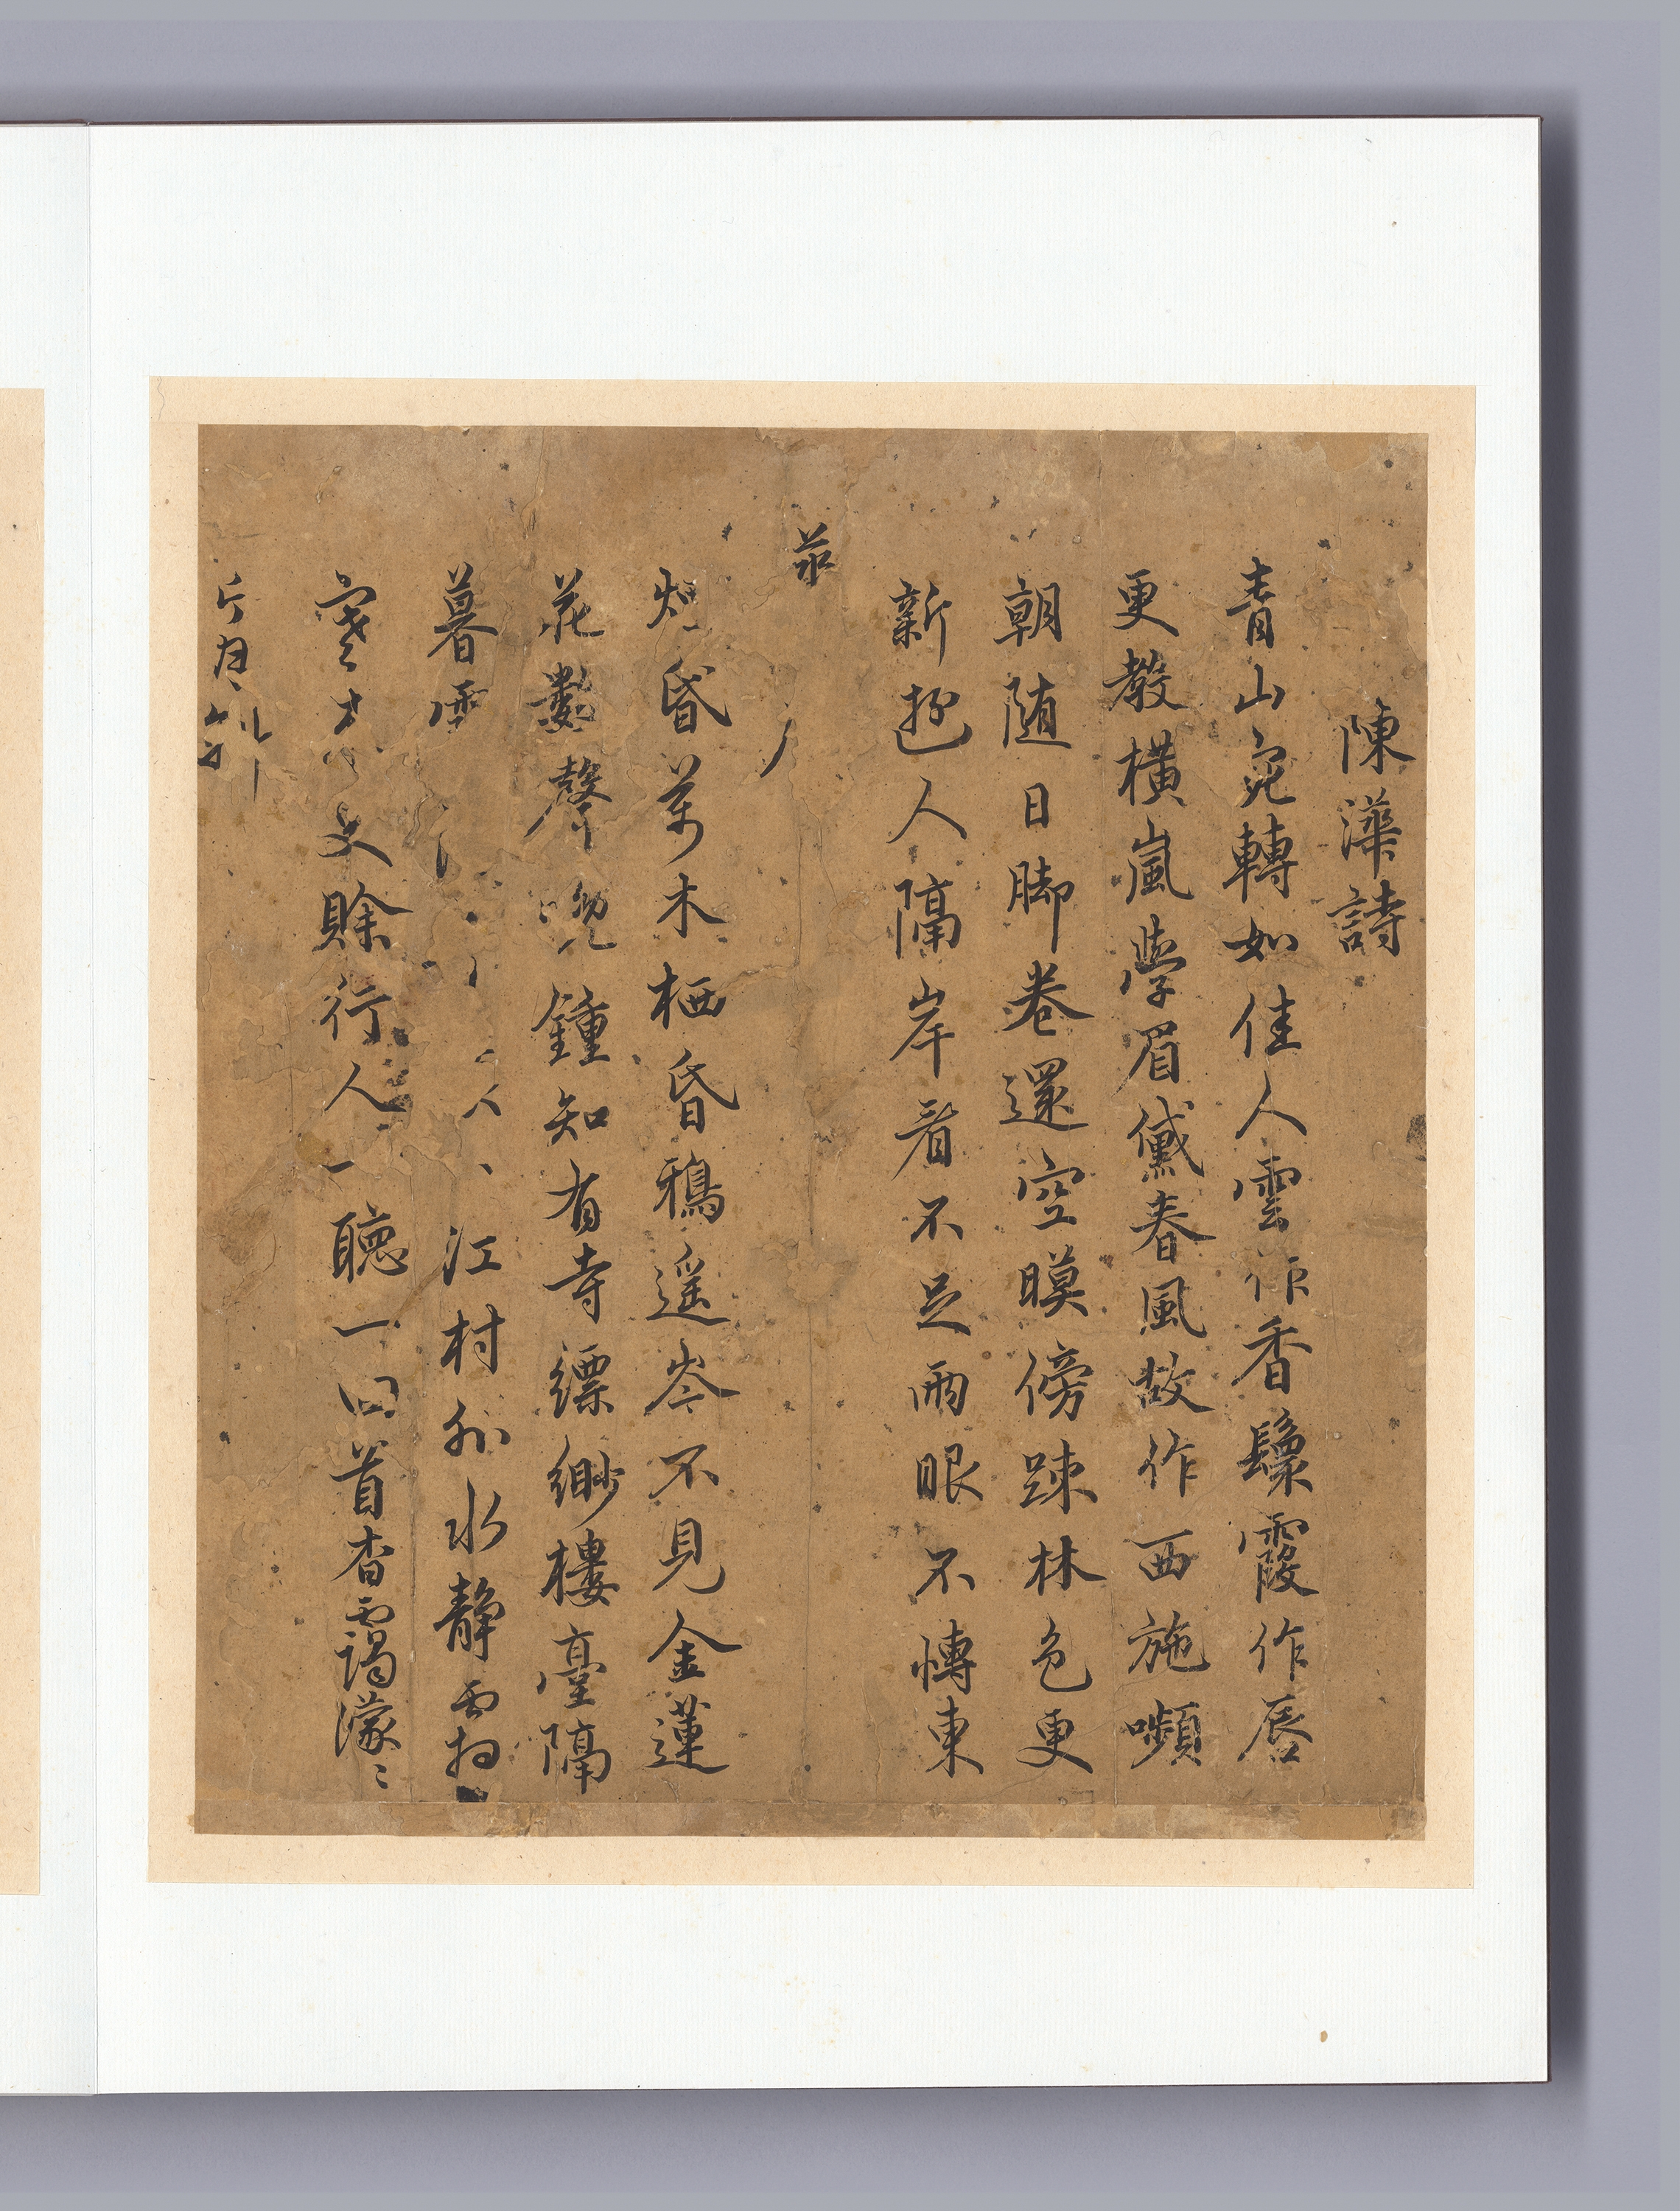 陳澕詩
青山宛轉如佳人雲作香鬟霞作唇
更教橫嵐學眉黛春風故作西施嚬
朝隨日脚卷還空暝傍踈林色更
新遊人隔岸看不足兩眼不慱東
烟昏萬木栖昏鴉遥岑不見金蓮
花數聲晩鍾知有寺縹緲樓臺隔
暮 江村外水静雲
賖行人一聽一回首杳靄濛〻
片月斜